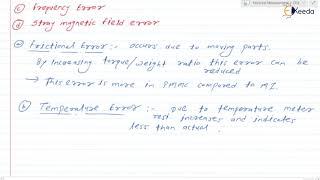 Ekeeda
(c) Frequency Error
(d) Stray magnetic field error
(a) Frictional Error :- occurs due to moving parts.
By increasing torque/weight ratio this error can be
reduced
→ This error is more in PMMC compared to MI.
(b) Temperature Error :- Due to temperature meter
rest increases and indicates
less than actual.